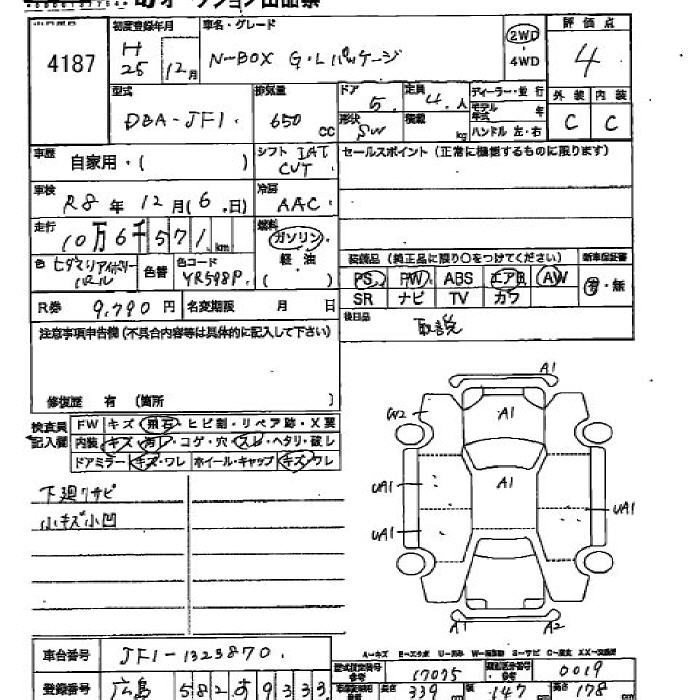 4187
初度登録年月 H 25年 12月
車名・グレード N-BOX G・Lパッケージ
2WD・4WD
評価点 4
外装 C 内装 C
型式 DBA-JF1
排気量 650 CC
ドア 5
定員 4人
形状 SW
積載 kg
ディーラー・並行
モデル年式 年
ハンドル 左・右
車歴 自家用・( )
シフト IAT CVT
セールスポイント（正常に機能するものに限ります）
車検 R8年 12月(6日)
冷房 AAC
走行 10万6千571km
燃料 ガソリン・軽油 ( )
色 ヒダマリアイボリーパール
色替
色コード YR598P
装備品（純正品に限り○をつけてください） 新車保証書
PS PW ABS エアB AW 有・無
SR ナビ TV カワ
R券 9,790円
名変期限 月 日
後日品 取説
注意事項申告欄（不具合内容等は具体的に記入して下さい）
修復歴 有（箇所 ）
検査員記入欄
FW キズ・飛石・ヒビ割・リペア跡・X要
内装 キズ・汚レ・コゲ・穴・スレ・ヘタリ・破レ
ドアミラー キズ・ワレ ホイール・キャップ キズ・ワレ
下廻りサビ
小キズ小凹
A1
W2
A1
UA1
A1
UA1
UA1
A1
A2
A-キズ E-エクボ U-凹み
車台番号 JF1-1323870
型式指定番号 17075 類別区分番号 0019
登録番号 広島 582 す 9333
長さ 339 幅 147 高さ 178